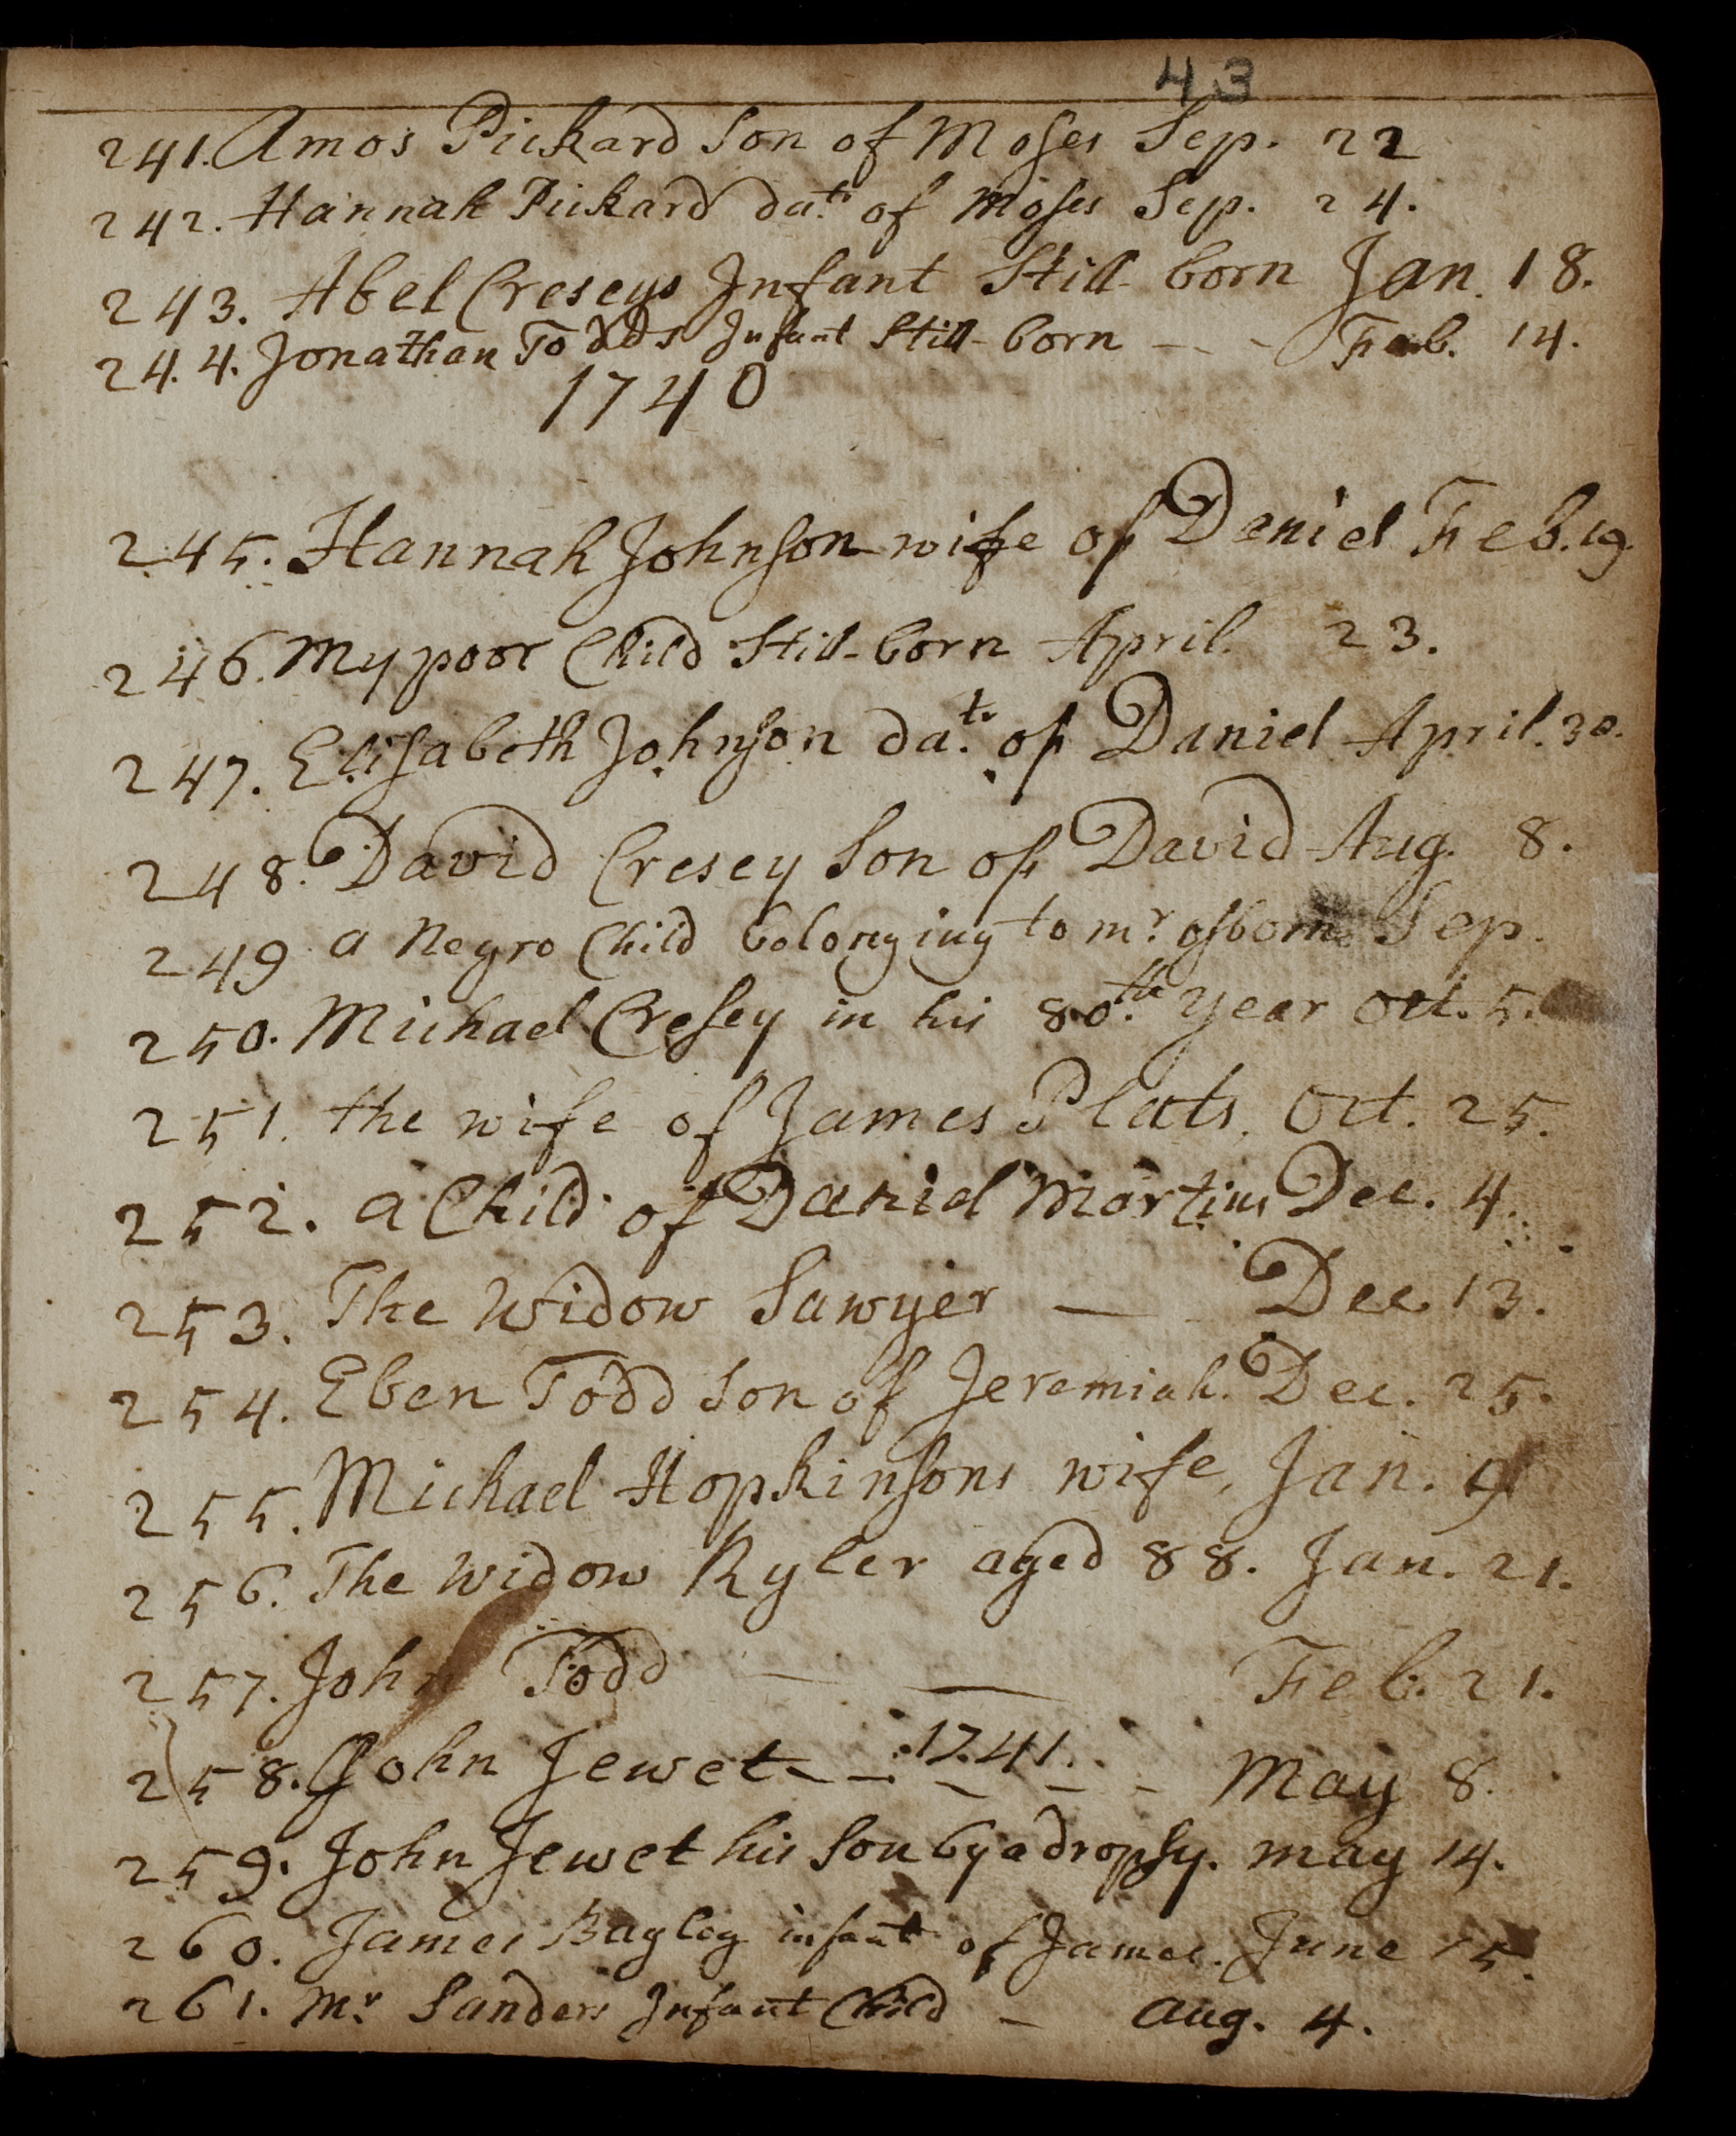 43
241. Amos Pickard Son of Moses Sep. 22
242. Hannah Pickard datr. of Moses Sep. 24.
243. Abel Creseys Infant Still-born Jan. 18.
244. Jonathan Todds Infant Still-born - - - Feb. 14.
1740
245. Hannah Johnson wife of Daniel Feb. 19.
246. My poor Child Still-born April. 23.
247. Elisabeth Johnson datr. of Daniel April. 30.
248. David Cresey Son of David Aug. 8.
249 a Negro Child belonging to mr. osborns Sep.
250. Michael Cresey in his 80th. year Oct. 5.
251. the wife of James Plats. Oct. 25.
252. a Child of Daniel Martins Dec. 4.
253. The Widow Sawyer — Dec. 13.
254. Eben Todd Son of Jeremiah. Dec. 25.
255. Michael Hopkinsons wife, Jan. 9
256. The Widow Ryler aged 88. Jan. 21.
257. John Todd — — Feb. 21.
1741.
258. John Jewet - - - - - May 8.
259. John Jewet his Son by a dropsy. may 14.
260. James Bayley infant of James. June 15.
261. Mr. Sanders Infant Child - Aug. 4.